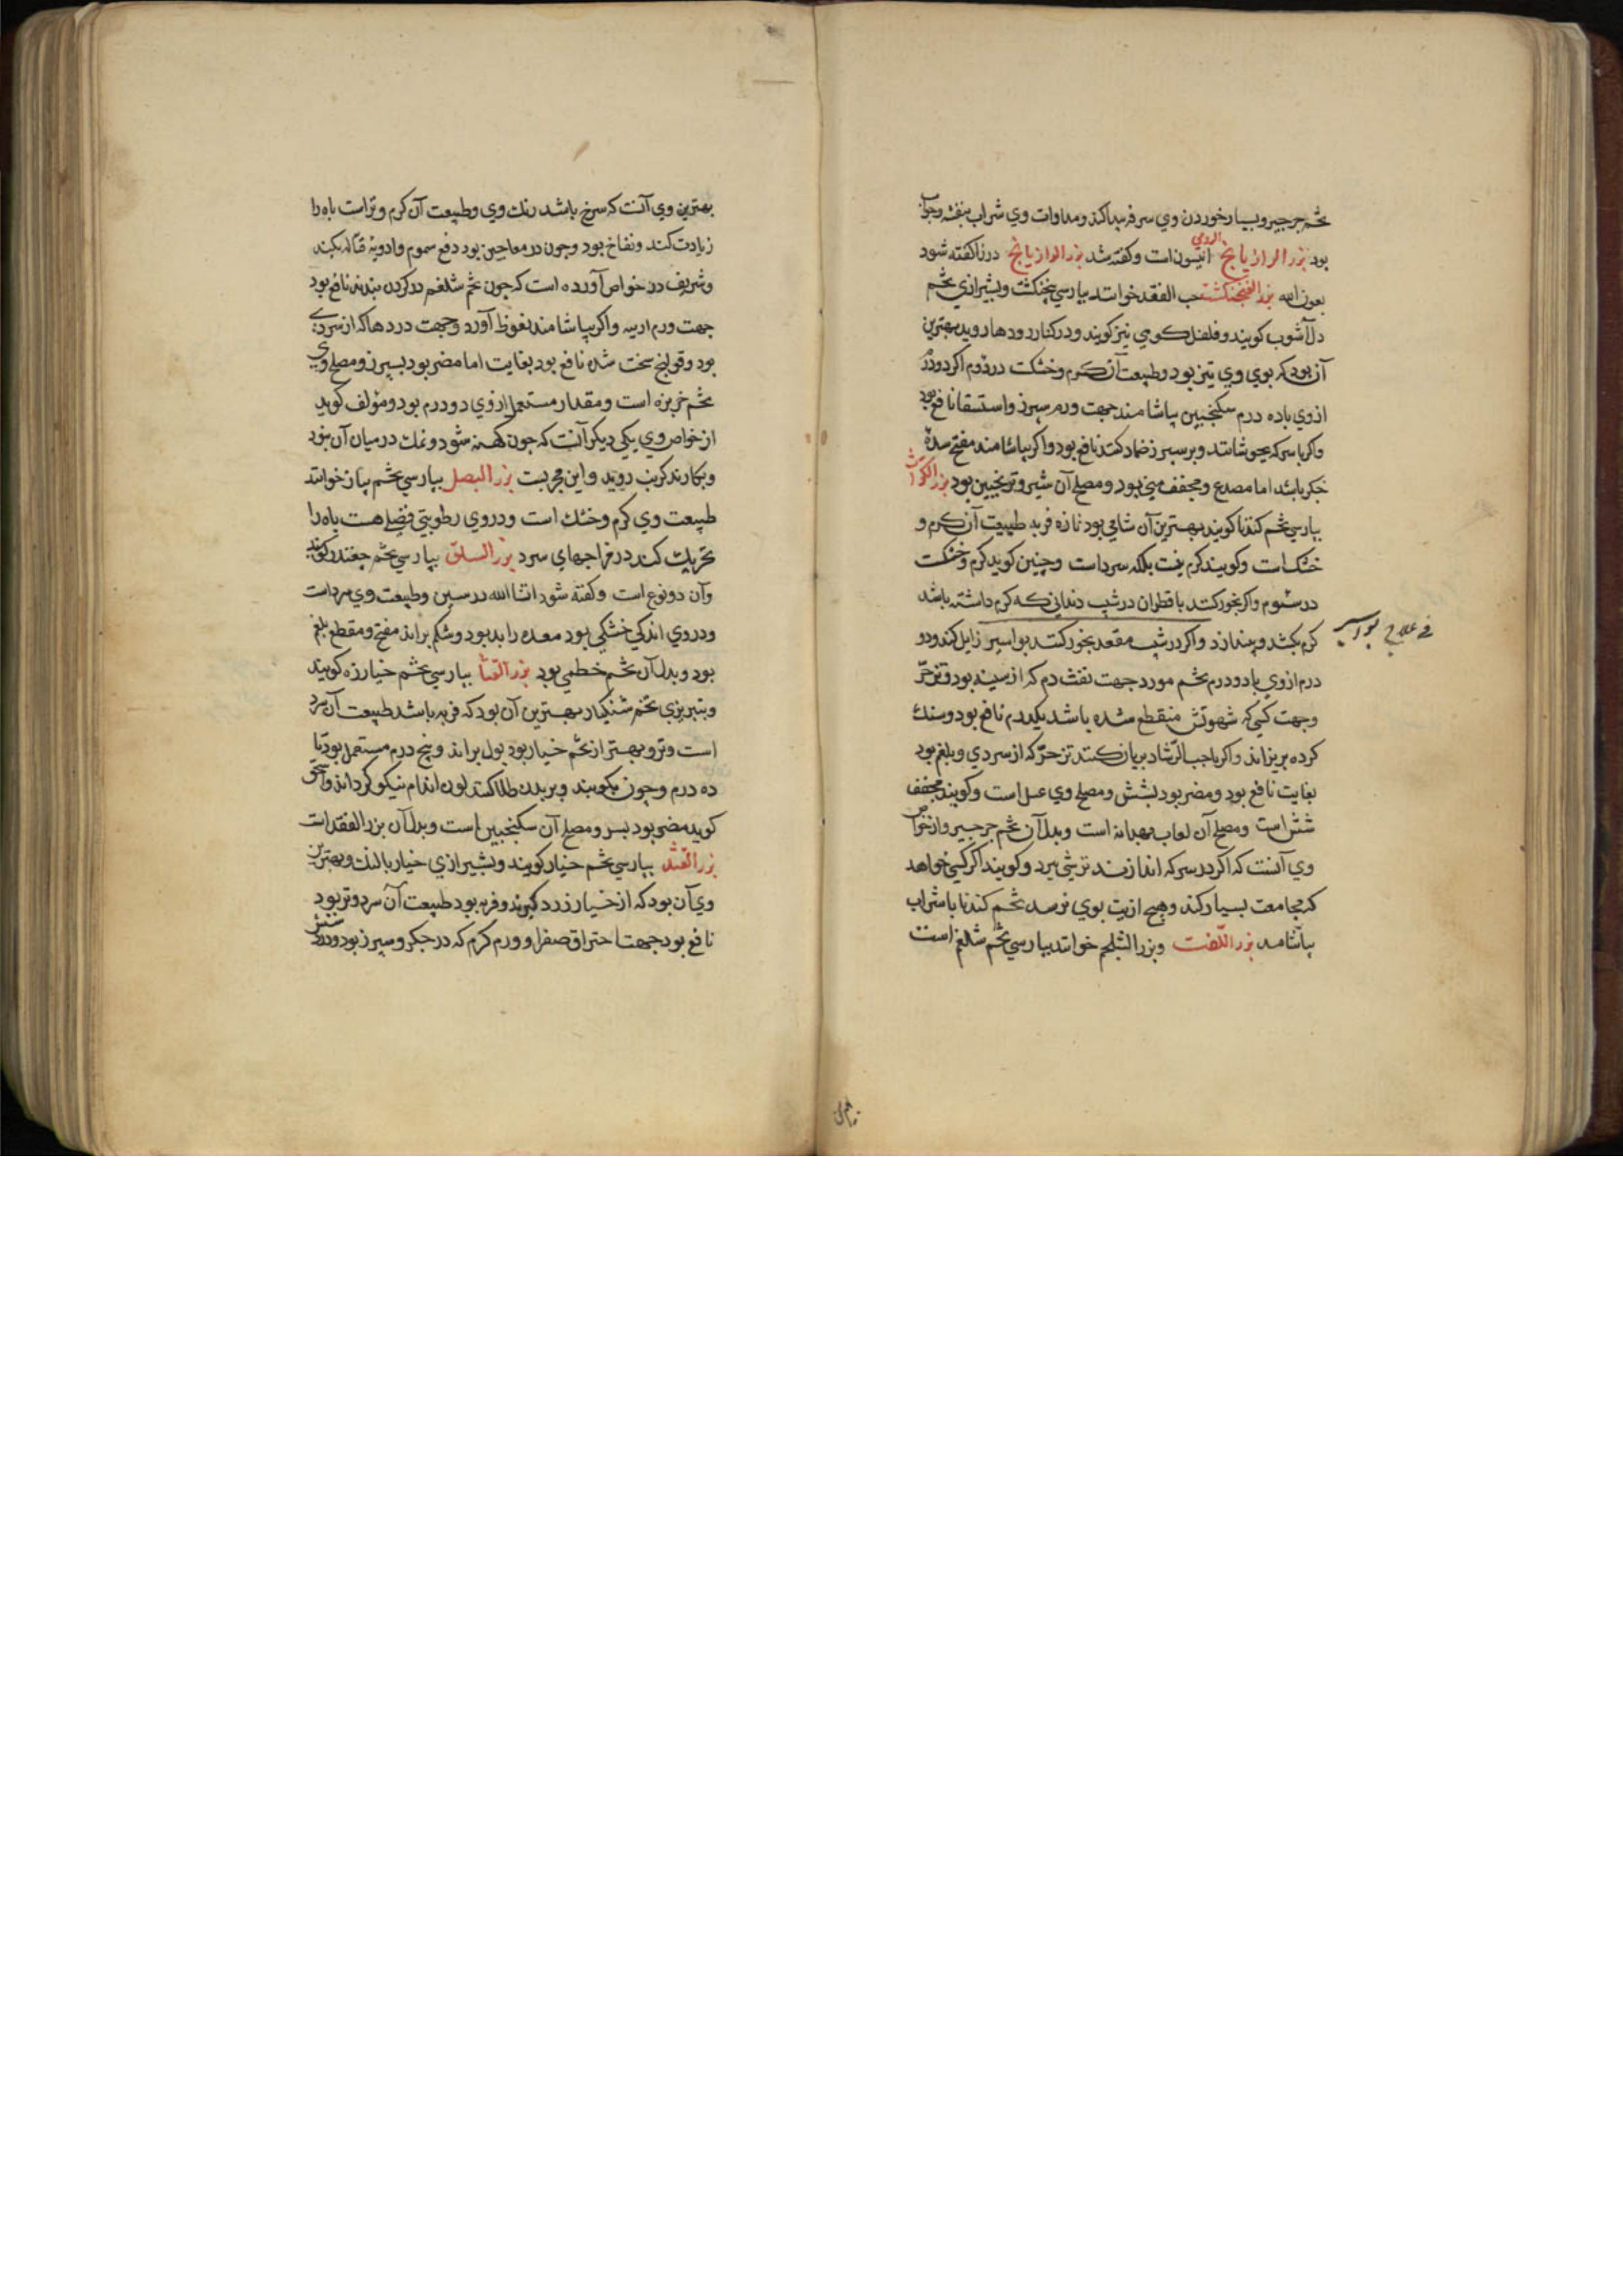 تخم جرجیر و بسیار خوردن وی سرفه پیدا کند و مداوات وی شراب بنفشه و جلاب
بود بزر الرازیانج الرومی انیسون است و گفته شد بزر الرازیانج در را گفته شود
بعون الله بزر الفنجنکشت حب الفقد خوانند بپارسی پنجنکشت و بشیرازی تخم
دل آشوب کویند و فلفل کوهی نیز کویند و در کنار رودها روید بهترین
آن بود که بوی وی تیز بود و طبیعت آن کرم و خشکست در دوم اکر دو درم
از وی با ده درم سکنجبین بیاشامند جهت ورم سپرز و استسقا نافع بود
و اکر با سرکه بجوشانند و بر سپرز ضماد کنند نافع بود و اکر بیاشامند مفتح سده
جکر باشد اما مصدع و مجفف منی بود و مصلح آن شیر و ترنجبین بود بزر الکراث
بپارسی تخم کندنا کویند بهترین آن شامی بود تازه فربه طبیعت آن کرم و
خشک است و کویند کرم نیست بلکه سرد است و چنین کوید کرم و خشکست
در سوم و اکر بخور کنند با قطران در شیب دندانی که کرم داشته باشد
کرم بکشد و بیندازد و اکر در شیب مقعد بخور کنند بواسیر زایل کند و دو
فی علاج بواسیر
درم از وی با دو درم تخم مورد جهت نفث دم که از سینه بود و تزحر
و جهت کسی که شهوتش منقطع شده باشد یکدرم نافع بود و سنک
کرده بریزاند و اکر با حب الرشاد بریان کنند تزحر که از سردی و بلغم بود
بغایت نافع بود و مضر بود بشش و مصلح وی عسل است و کویند مجفف
شش است و مصلح آن لعاب بهدانه است و بدل آن تخم جرجیر و از خواص
وی آنست که اکر در سرکه اندازند ترشی ببرد و کویند اکر کسی خواهد
که مجامعت بسیار کند و هیچ اذیت بوی نرسد تخم کندنا با شراب
بیاشامد بزر اللفت و بزر الشلجم خوانند بپارسی تخم شلغم است
بهترین وی آنست که سرخ باشد رنک وی و طبیعت آن کرم و تر است باه را
زیادت کند و نفاخ بود و چون در معاجین بود دفع سموم و ادویه قتاله بکند
و شریف در خواص آورده است که چون تخم شلغم در کردن بندند نافع بود
جهت ورم اربیه و اکر بیاشامند نعوظ آورد و جهت دردها که از سردی
بود و قولنج سخت شده نافع بود بغایت اما مضر بود بسپرز و مصلح وی
تخم خربزه است و مقدار مستعمل از وی دو درم بود و مؤلف کوید
از خواص وی یکی دیکر آنست که چون کهنه شود و نمک در میان آن بود
و بکارند کرنب روید و این مجربست بزر البصل بپارسی تخم پیاز خوانند
طبیعت وی کرم و خشک است و در وی رطوبتی فضلی هست باه را
تحریک کند در مزاجهای سرد بزر السلق بپارسی تخم چغندر کویند
و آن دو نوع است و کفته شود انشا الله در سین و طبیعت وی سرد است
و در وی اندکی خشکی بود معده را بد بود و شکم براند مفتح و مقطع بلغم
بود و بدل آن تخم خطمی بود بزر القثا بپارسی تخم خیارزه کویند
و بتبریزی تخم شنکیار بهترین آن بود که فربه باشد طبیعت آن سرد
است و تر و بهتر از تخم خیار بود بول براند و پنج درم مستعمل بود تا
ده درم و چون بکوبند و بر بدن طلا کنند لون اندام نیکو کرداند و اسحق
کوید مضر بود بسر و مصلح آن سکنجبین است و بدل آن بزر الفقد است
بزر القثد بپارسی تخم خیار کویند و بشیرازی خیار بالنک و بهترین
وی آن بود که از خیار زرد کیرند و فربه بود طبیعت آن سرد و تر بود
نافع بود جهت احتراق صفرا و ورم کرم که در جکر و سپرز بود و درد شش